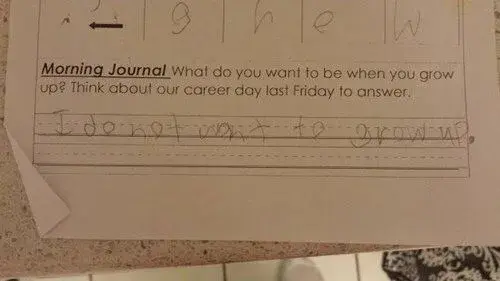 g h e w
Morning Journal What do you want to be when you grow
up? Think about our career day last Friday to answer.
I do not want to grow up.